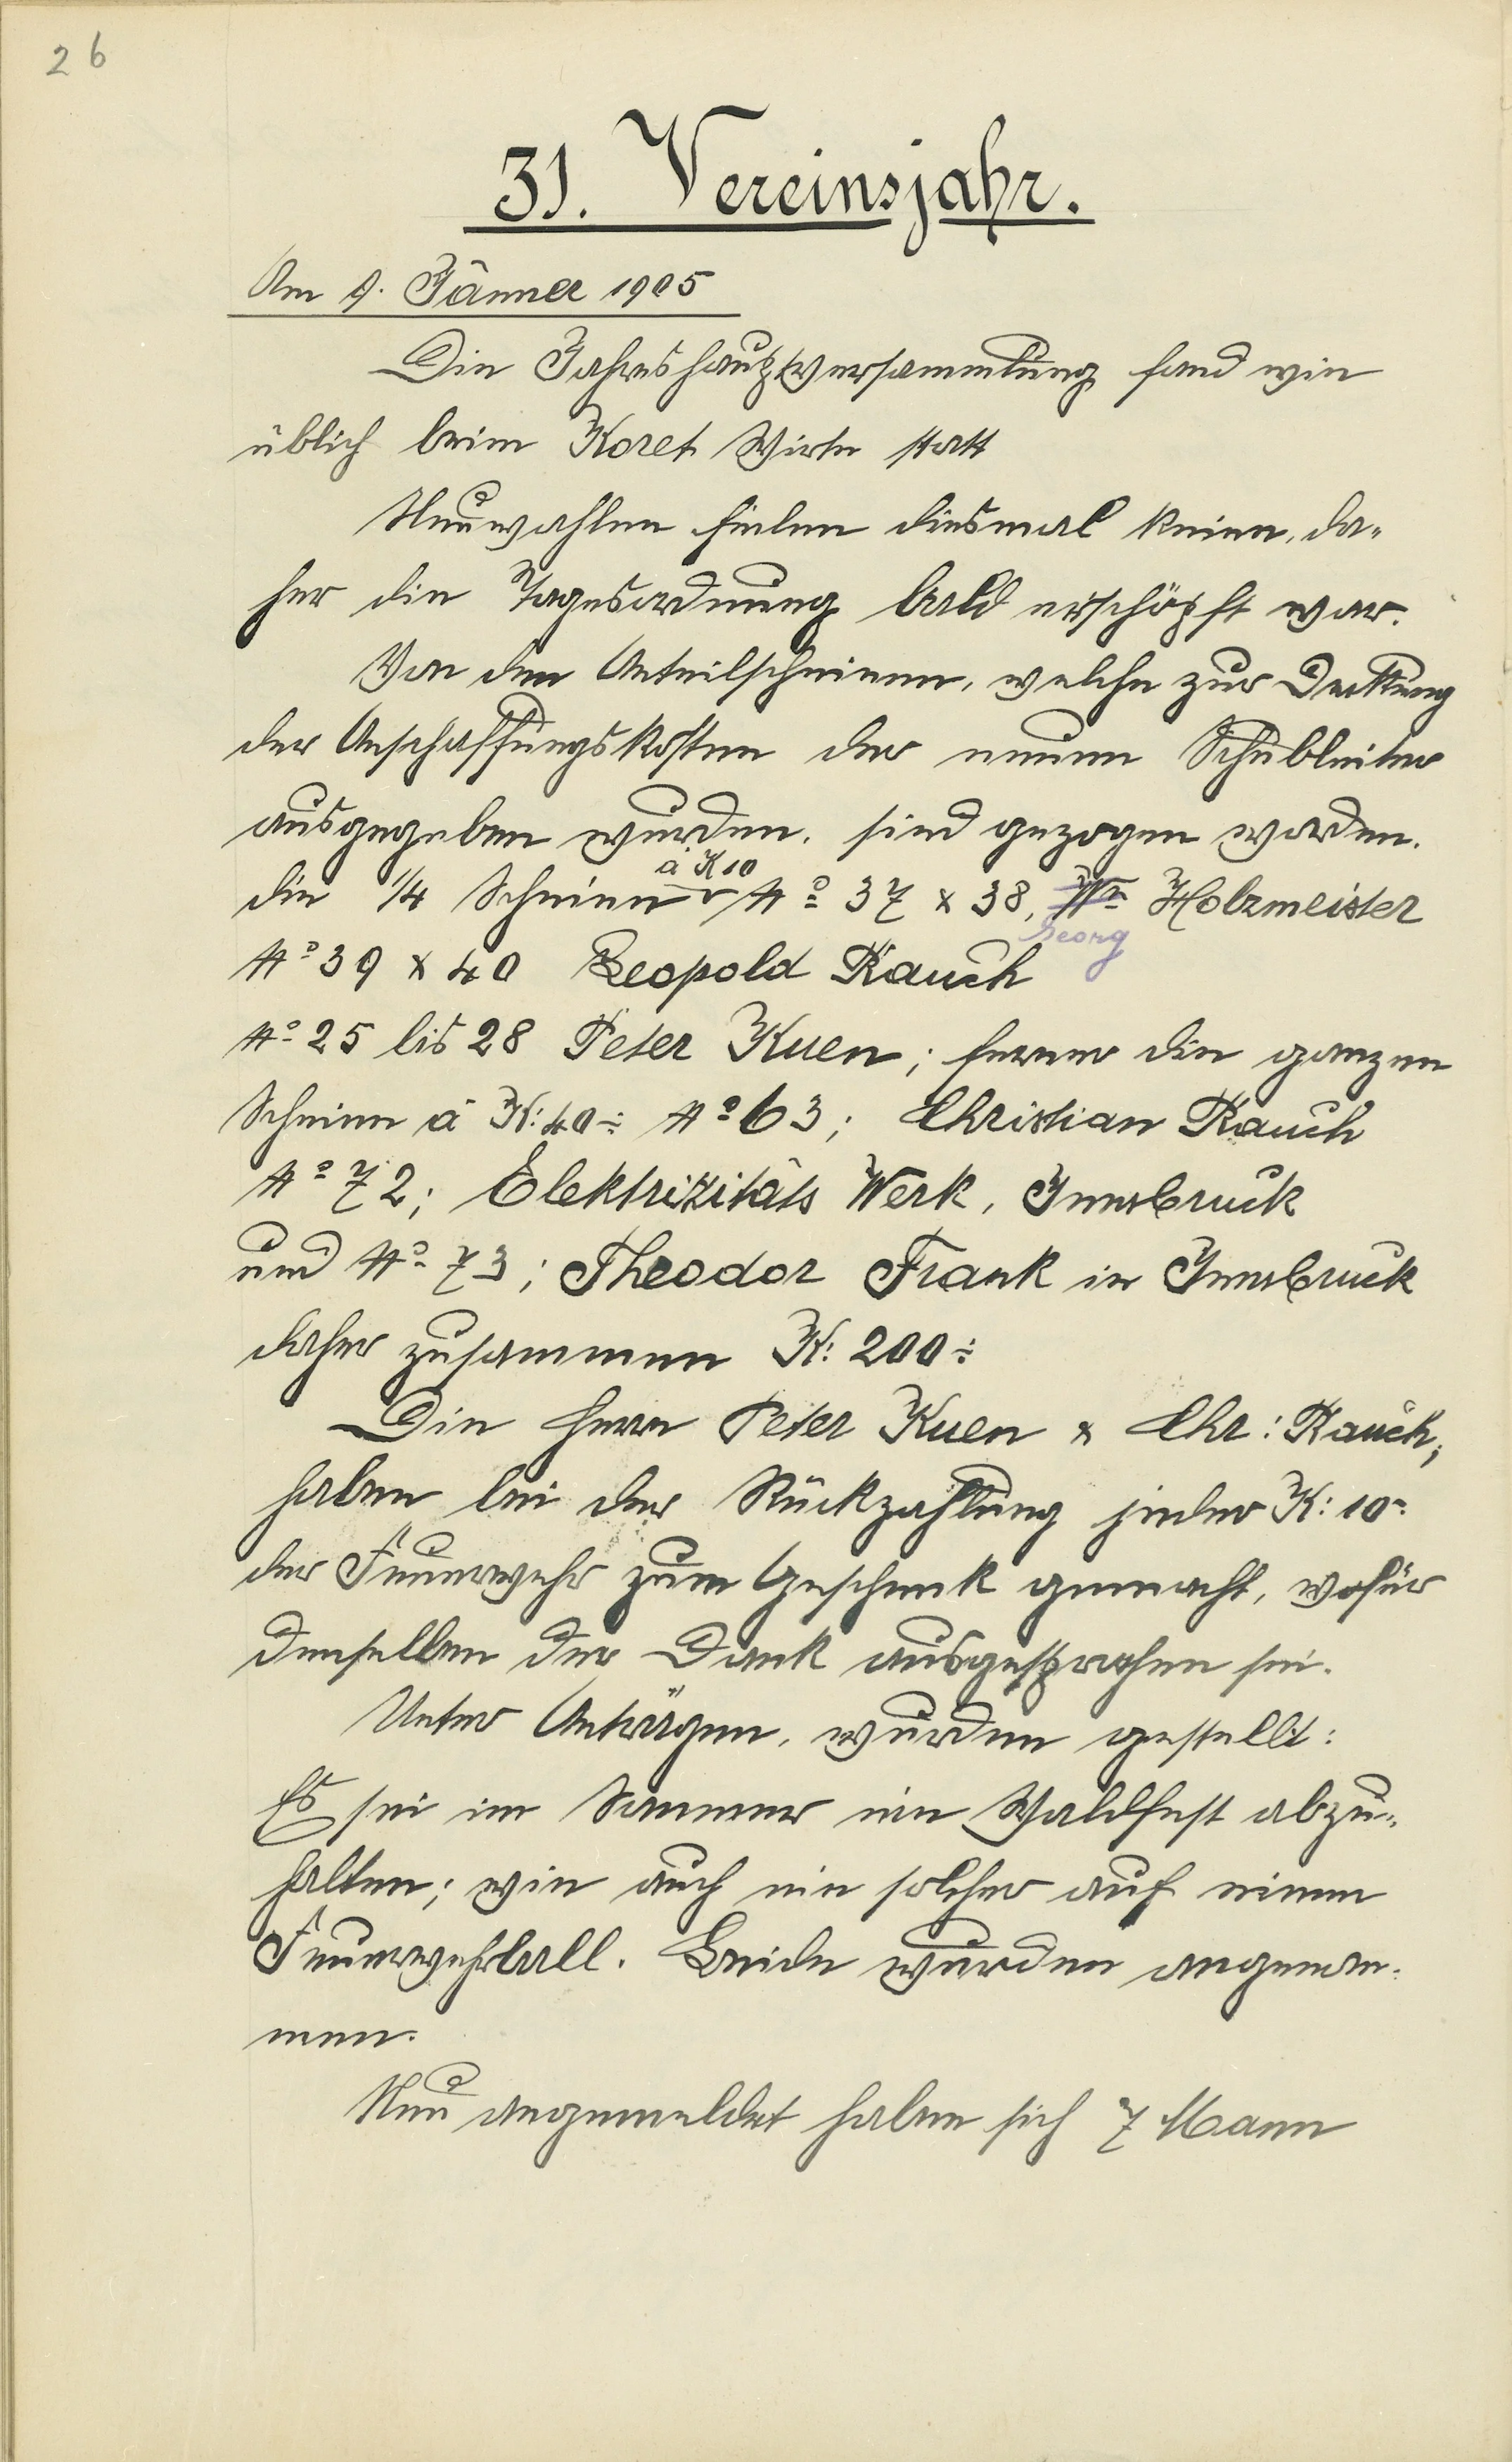 26
31. Vereinsjahr.
Am 9. Jänner 1905
Die Jahreshauptversammlung fand wie
üblich beim Koret Wirte statt
Neuwahlen fielen diesmal keine, da-
her die Tagesordnung bald erschöpft war.
Von den Anteilscheinen, welche zur Deckung
der Anschaffungskosten der neuen Schubleiter
ausgegeben wurden, sind gezogen worden.
à K 10
die 1/4 Scheine No 37 & 38, Holzmeister
Georg
No 39 & 40 Leopold Rauch
No 25 bis 28 Peter Kuen; ferner die ganzen
Scheine à K: 40÷ No 63; Christian Rauch
No 72; Elektrizitäts Werk, Innsbruck
und No 73; Theodor Frank in Innsbruck
daher zusammen K: 200÷
Die Herrn Peter Kuen & Chr: Rauch,
haben bei der Rückzahlung jeder K: 10-
der Feuerwehr zum Geschenk gemacht, wofür
denselben der Dank ausgesprochen sei.
Unter Anträgen, wurden gestellt:
Es sei im Sommer ein Waldfest abzu-
halten; wie auch ein solcher auf einen
Feuerwehrball. Beide wurden angenom-
men.
Neu angemeldet haben sich 7 Mann